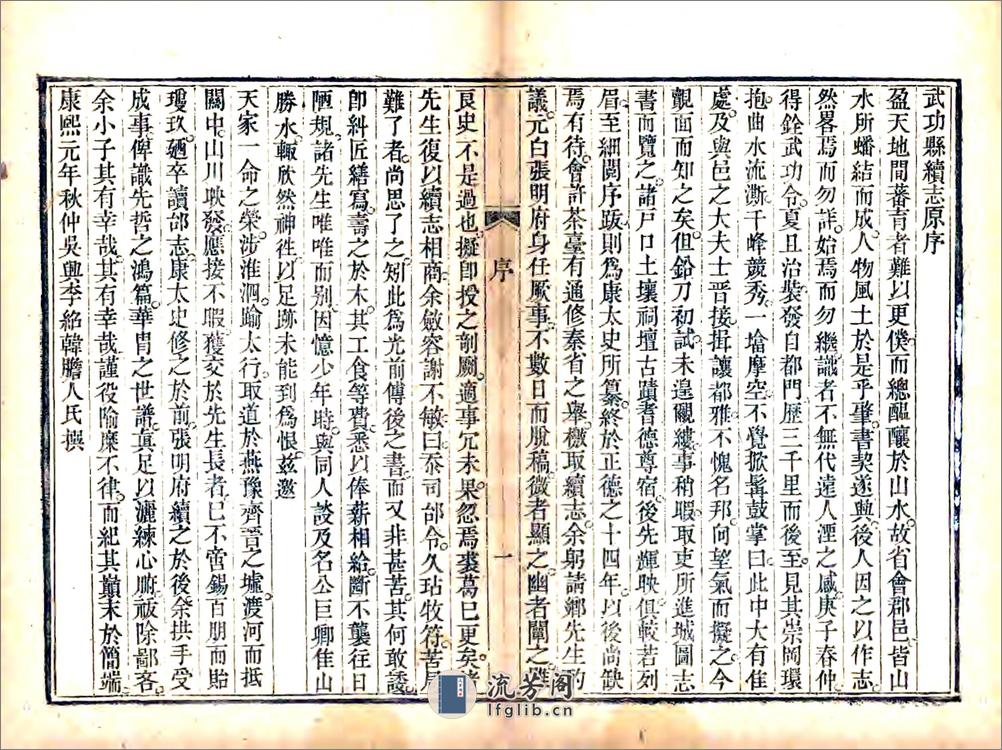 武功縣續志原序
盈天地間蕃育者難以更僕而總醞釀於山水故省會郡邑皆山
水所蟠結而成人物風土於是乎肇書契遂興後人因之以作志
然畧焉而勿詳始焉而勿繼識者不無代遠人湮之感庚子春仲
得銓武功令夏且治裝發自都門歷三千里而後至見其崇岡環
抱曲水流澌千峰競秀一墖摩空不覺掀髯鼓掌曰此中大有佳
處及與邑之大夫士晉接揖讓都雅不愧名邦向望氣而擬之今
覿面而知之矣但鉛刀初試未遑覼縷事稍暇取吏所進城圖志
書而覽之諸戶口土壤祠壇古蹟耆德尊宿後先輝映俱較若列
眉至細閱序跋則爲康太史所纂終於正德之十四年以後尚缺
焉有待會許茶臺有通修秦省之舉檄取續志余躬請鄉先生酌
議元白張明府身任厥事不數日而脫稿微者顯之幽者闡之雖
序
一
良史不是過也擬卽授之剞劂適事冗未果忽焉裘葛已更矣諸
先生復以續志相商余敏容謝不敏曰忝司邰令久玷牧符苦
難了者尚思了之矧此爲光前傳後之書而又非甚苦其何敢諉
卽糾匠繕寫壽之於木其工食等費悉以俸薪相給斷不襲往日
陋規諸先生唯唯而别因憶少年時與同人談及名公巨卿佳山
勝水輙欣然神徃以足跡未能到爲恨茲邀
天家一命之榮涉淮泗踰太行取道於燕豫齊晉之墟渡河而抵
關中山川映發應接不暇獲交於先生長者已不啻錫百朋而貽
瓊玖廼卒讀邰志康太史修之於前張明府續之於後余拱手受
成事俾識先哲之鴻篇華胄之世譜真足以灑練心腑祓除鄙吝
余小子其有幸哉其有幸哉謹役隃糜不律而紀其巔末於簡端
康熙元年秋仲吳興李紹韓膽人氏撰
流芳阁
lfglib.cn